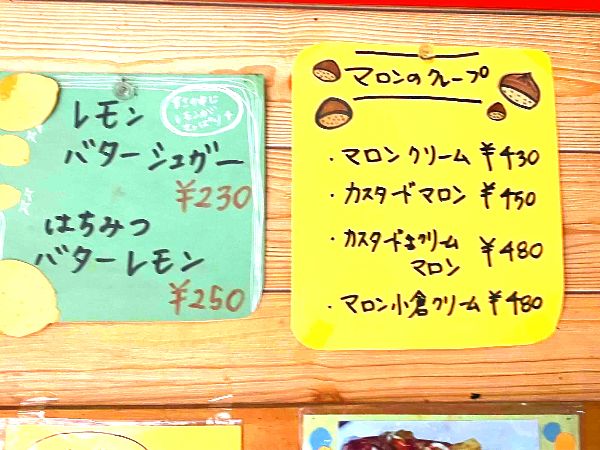 レモン
バターシュガー
¥230
はちみつ
バターレモン
¥250
マロンのクレープ
・マロンクリーム ¥430
・カスタードマロン ¥450
・カスタード生クリーム
マロン ¥480
・マロン小倉クリーム ¥480